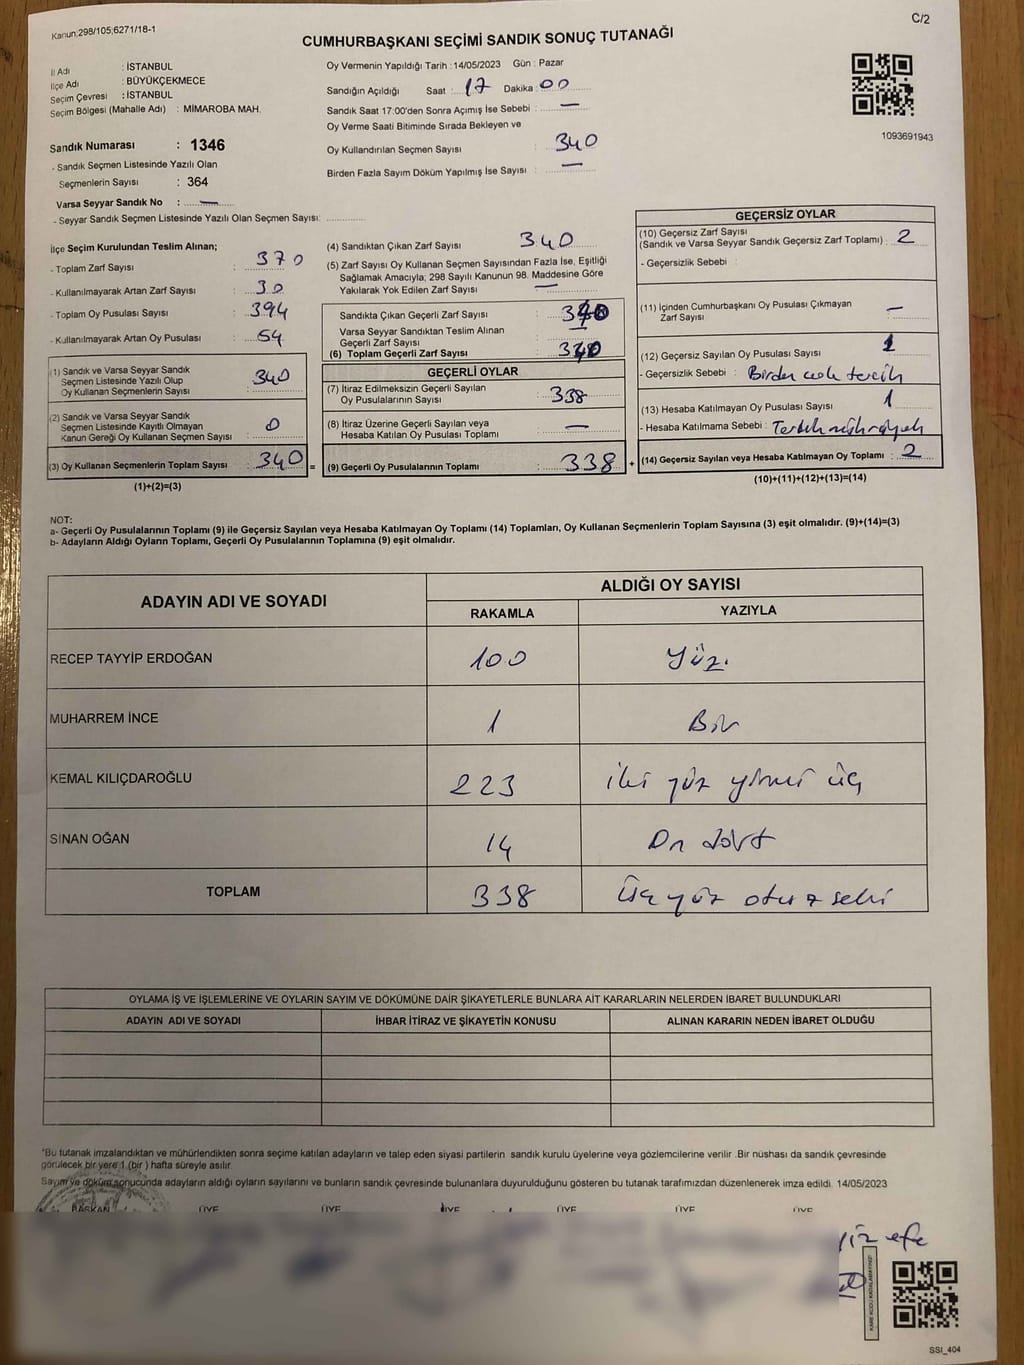 Kanun;298/105;6271/18-1
C/2
CUMHURBAŞKANI SEÇİMİ SANDIK SONUÇ TUTANAĞI
İl Adı : İSTANBUL
İlçe Adı : BÜYÜKÇEKMECE
Seçim Çevresi : İSTANBUL
Seçim Bölgesi (Mahalle Adı) : MİMAROBA MAH.
Sandık Numarası : 1346
- Sandık Seçmen Listesinde Yazılı Olan
Seçmenlerin Sayısı : 364
Varsa Seyyar Sandık No : —
- Seyyar Sandık Seçmen Listesinde Yazılı Olan Seçmen Sayısı:
Oy Vermenin Yapıldığı Tarih : 14/05/2023 Gün : Pazar
Sandığın Açıldığı Saat : 17 Dakika : 00
Sandık Saat 17:00'den Sonra Açımış İse Sebebi : —
Oy Verme Saati Bitiminde Sırada Bekleyen ve
Oy Kullandırılan Seçmen Sayısı : 340
Birden Fazla Sayım Döküm Yapılmış İse Sayısı : —
1093691943
İlçe Seçim Kurulundan Teslim Alınan;
- Toplam Zarf Sayısı : 370
- Kullanılmayarak Artan Zarf Sayısı : 30
- Toplam Oy Pusulası Sayısı : 394
- Kullanılmayarak Artan Oy Pusulası : 54
(1) Sandık ve Varsa Seyyar Sandık
Seçmen Listesinde Yazılı Olup
Oy Kullanan Seçmenlerin Sayısı : 340
(2) Sandık ve Varsa Seyyar Sandık
Seçmen Listesinde Kayıtlı Olmayan
Kanun Gereği Oy Kullanan Seçmen Sayısı : 0
(3) Oy Kullanan Seçmenlerin Toplam Sayısı : 340 =
(1)+(2)=(3)
(4) Sandıktan Çıkan Zarf Sayısı : 340
(5) Zarf Sayısı Oy Kullanan Seçmen Sayısından Fazla İse, Eşitliği
Sağlamak Amacıyla; 298 Sayılı Kanunun 98. Maddesine Göre
Yakılarak Yok Edilen Zarf Sayısı : —
Sandıkta Çıkan Geçerli Zarf Sayısı :
Varsa Seyyar Sandıktan Teslim Alınan
Geçerli Zarf Sayısı : —
(6) Toplam Geçerli Zarf Sayısı :
GEÇERLİ OYLAR
(7) İtiraz Edilmeksizin Geçerli Sayılan
Oy Pusulalarının Sayısı : 338
(8) İtiraz Üzerine Geçerli Sayılan veya
Hesaba Katılan Oy Pusulası Toplamı : —
(9) Geçerli Oy Pusulalarının Toplamı : 338 +
GEÇERSİZ OYLAR
(10) Geçersiz Zarf Sayısı
(Sandık ve Varsa Seyyar Sandık Geçersiz Zarf Toplamı) : 2
- Geçersizlik Sebebi :
(11) İçinden Cumhurbaşkanı Oy Pusulası Çıkmayan
Zarf Sayısı : —
(12) Geçersiz Sayılan Oy Pusulası Sayısı : 1
- Geçersizlik Sebebi : Birden cok tercih
(13) Hesaba Katılmayan Oy Pusulası Sayısı : 1
- Hesaba Katılmama Sebebi :
(14) Geçersiz Sayılan veya Hesaba Katılmayan Oy Toplamı : 2
(10)+(11)+(12)+(13)=(14)
NOT:
a- Geçerli Oy Pusulalarının Toplamı (9) ile Geçersiz Sayılan veya Hesaba Katılmayan Oy Toplamı (14) Toplamları, Oy Kullanan Seçmenlerin Toplam Sayısına (3) eşit olmalıdır. (9)+(14)=(3)
b- Adayların Aldığı Oyların Toplamı, Geçerli Oy Pusulalarının Toplamına (9) eşit olmalıdır.
ADAYIN ADI VE SOYADI
ALDIĞI OY SAYISI
RAKAMLA YAZIYLA
RECEP TAYYİP ERDOĞAN 100 Yüz.
MUHARREM İNCE 1 Bir
KEMAL KILIÇDAROĞLU 223 iki yüz yirmi üç
SİNAN OĞAN 14 On dört
TOPLAM 338 üç yüz otuz seki
OYLAMA İŞ VE İŞLEMLERİNE VE OYLARIN SAYIM VE DÖKÜMÜNE DAİR ŞİKAYETLERLE BUNLARA AİT KARARLARIN NELERDEN İBARET BULUNDUKLARI
ADAYIN ADI VE SOYADI İHBAR İTİRAZ VE ŞİKAYETİN KONUSU ALINAN KARARIN NEDEN İBARET OLDUĞU
*Bu tutanak imzalandıktan ve mühürlendikten sonra seçime katılan adayların ve talep eden siyasi partilerin sandık kurulu üyelerine veya gözlemcilerine verilir .Bir nüshası da sandık çevresinde
görülecek bir yere 1 (bir ) hafta süreyle asılır.
Sayım ve döküm sonucunda adayların aldığı oyların sayılarını ve bunların sandık çevresinde bulunanlara duyurulduğunu gösteren bu tutanak tarafımızdan düzenlenerek imza edildi. 14/05/2023
BAŞKAN ÜYE ÜYE ÜYE ÜYE ÜYE ÜYE
efe
SSI_404